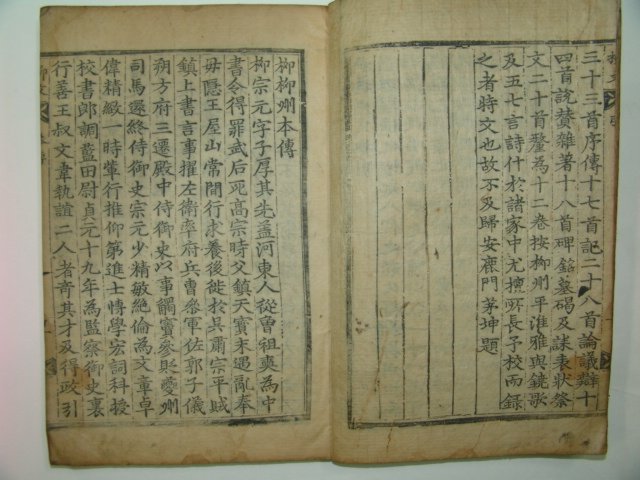 三十三首序傳十七首記二十八首論議辯十
四首說贊雜著十八首碑銘墓碣及誄表狀祭
文二十首釐為十二卷按柳州平淮雅與鐃歌
及五七言詩什於諸家中尤擅所長予校而錄
之者特文也故不及歸安鹿門茅坤題
柳柳州本傳
柳宗元字子厚其先盖河東人從曾祖奭為中
書令得罪武后死高宗時父鎮天寶末遇亂奉
毋隱王屋山常間行求養後徙於吳肅宗平賊
鎮上書言事擢左衛率府兵曹叅軍佐郭子儀
朔方府三遷殿中侍御史以事觸竇參貶夔州
司馬還終侍御史宗元少精敏絶倫為文章卓
偉精緻一時軰行推仰第進士博學宏詞科授
校書郎調藍田尉貞元十九年為監察御史裏
行善王叔文韋執誼二人者竒其才及得政引